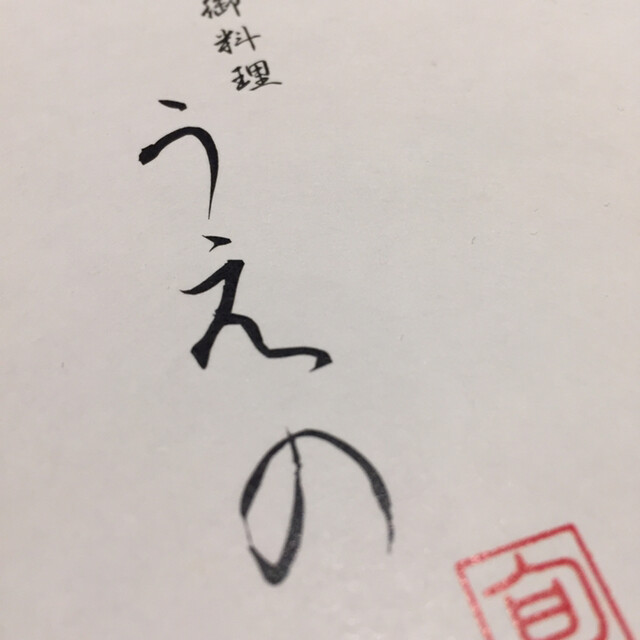 御料理
うえの
旬